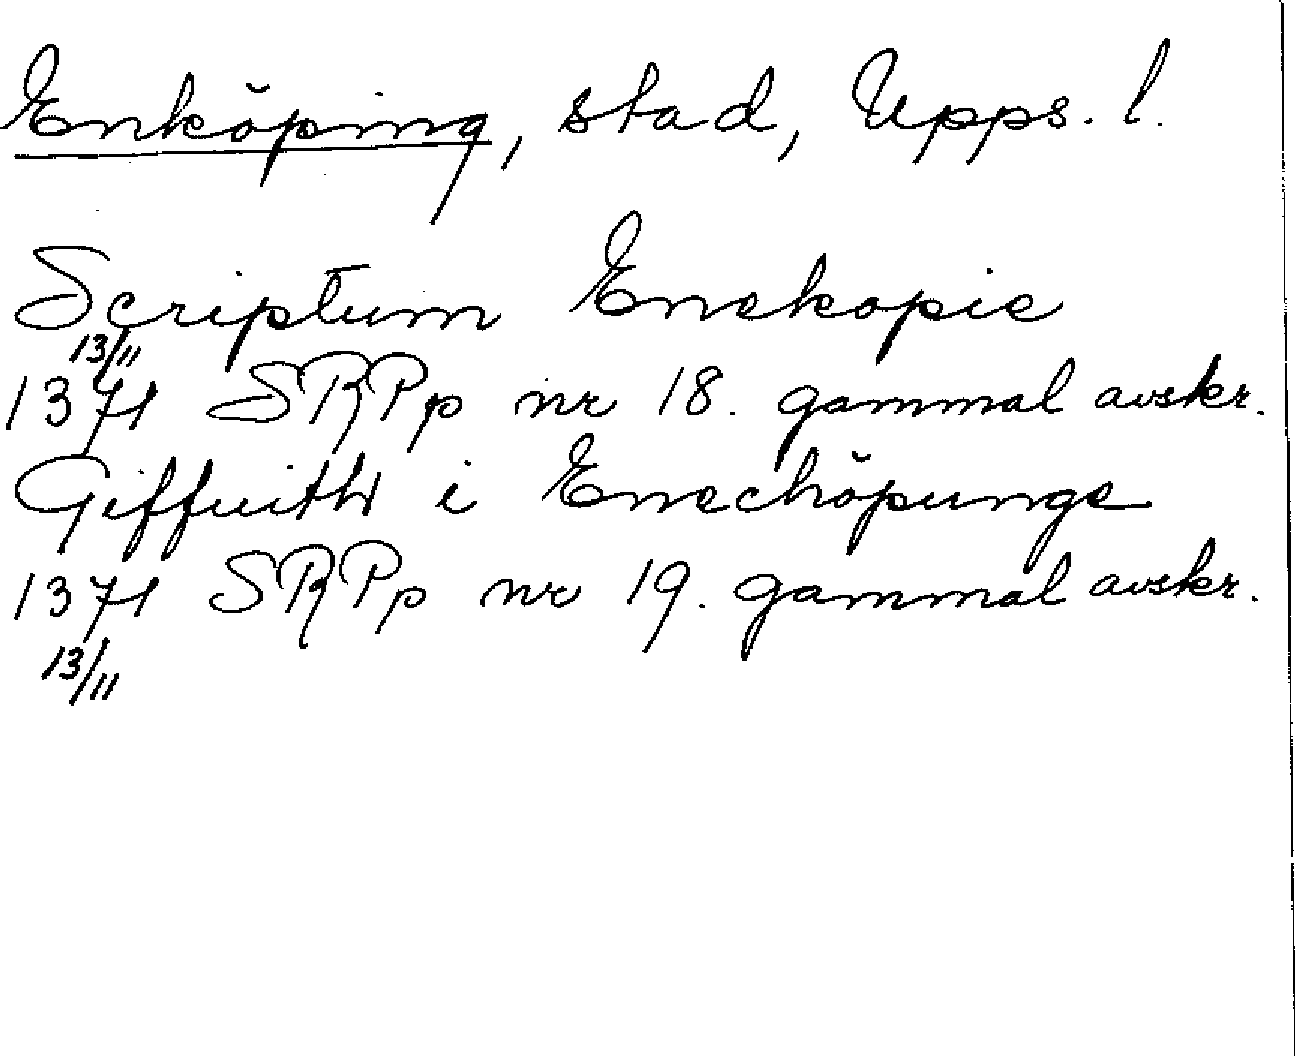 Enköping, stad, Upps. l.
Scriptum Enekopie
13/11
1371 SRPp nr 18. gammal avskr.
Giffuith i Enechöpunge
1371 SRPp nr 19. gammal avskr.
13/11